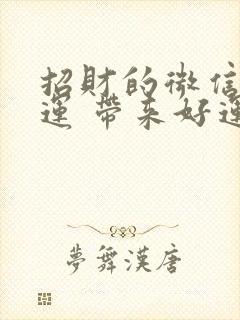 招財的微信
運 帶來好運
夢舞漢唐